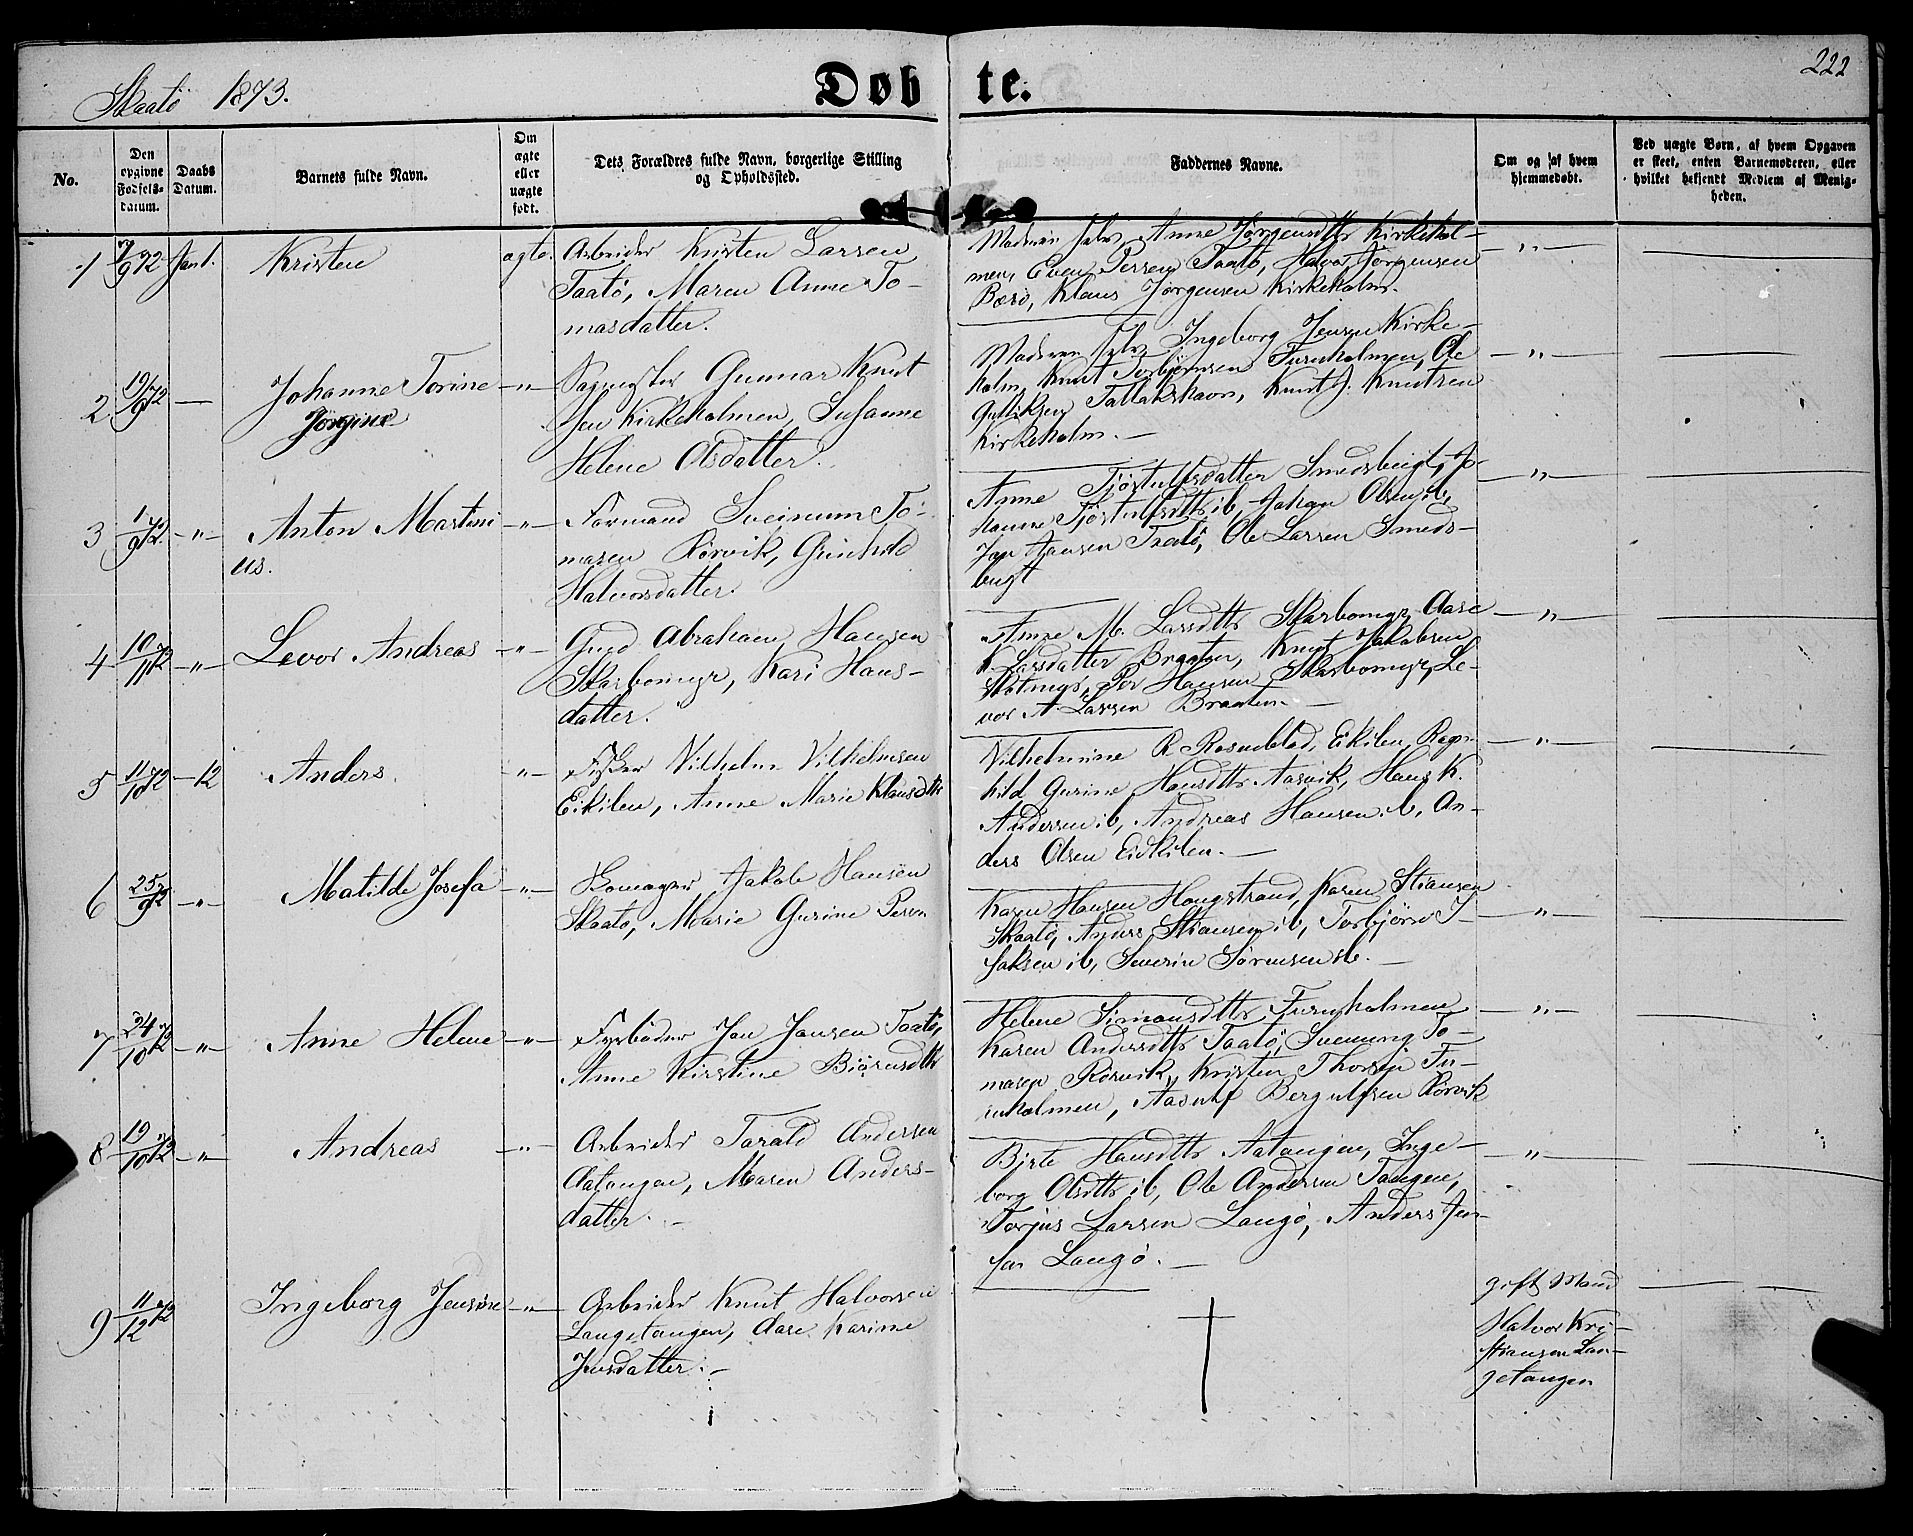 Skaatø 1873.
Døbte.
222
No.
Den opgivne Fødsels-datum.
Daabs Datum.
Barnets fulde Navn.
Om ægte eller uægte født.
Dets Forældres fulde Navn, borgerlige Stilling og Opholdssted.
Faddernes Navne.
Om og af hvem hjemmedøbt.
Ved uægte Børn, af hvem Opgaven er skeet, enten Barnemoderen, eller hvilket bekjendt Medlem af Menigheden.
1 7/9 72 Jan 1. Kristen ægte.
Arbeider Kristen Larsen
Taatø, Maren Anne To-
masdatter.
Moderen selv, Anne Jørgensdtr Kirkehol-
men, Even Persen Taatø, Halvor Jørgensen
Barø, Klaus Jørgensen Kirkeholm.
— „ —
2 19/9 72 — Johanne Torine — „ —
Jørgine
Gunnar Knut
sen Kirkeholmen, Susanne
Helene Olsdatter.
Moderen selv, Ingeborg Jensen Kirke-
holm, Knut Torbjørnsen Furuholmen, Ole
Gulliksen Tallakshavn, Knut J. Knutsen
Kirkeholm. —
— „ —
3 1/9 72. — „ — Anton Martini — „ —
us.
Formand Sveinum To-
masen Rørvik, Gunhild
Halvorsdatter.
Anne Tjøstulfsdatter Smedsbugt, Jo-
hanne Tjøstulfsdtr ib, Johan Olsen ib,
Jan Jansen Taatø, Ole Larsen Smeds-
bugt
— „ —
4 10/11 72 — „ — Levor Andreas — „ —
Gmd Abraham Hansen
Skarbomyr, Kari Hans-
datter.
Anne M. Larsdtr Skarbomyr, Aase
K. Larsdatter Braaten, Knut Jakobsen
Per Hansen Skarbomyr, Le-
vor A. Larsen Braaten. —
— „ —
5 11/10 72 — 12 Anders. — „ —
Fisker Vilhelm Vilhelmsen
Eikilen, Anne Marie Klausdtr
Vilhelmine R. Rosenblad, Eikilen, Ragn-
hild Gurine Hansdtr Aasvik, Hans K.
Andersen ib, Andreas Hansen ib, An-
ders Olsen Eidkilen. —
— „ —
6 25/9 72 — „ — Matilde Josefa — „ —
Jakob Hansen
Skaatø, Marie Gurine Persn
Karen Hansen Haugstrand, Karen Stiansen
Skaatø, Anders Stiansen ib, Torbjørn I-
saksen ib, Severin Sørensen ib. —
— „ —
7 24/10 72 — „ — Anne Helene — „ —
Fyrbøder Jan Jansen Taatø,
Anne Kirstine Biørnsdtr
Helene Simonsdtr Furuholmen
Karen Andersdtr Taatø, Svenung To-
masen Rørvik, Kristen Thorsen Fu-
ruholmen, Aasulf Bergulfsen Rørvik
— „ —
8 19/10 72 — „ — Andreas — „ —
Arbeider Tarald Andersen
Aatangen, Maren Anders-
datter. —
Birte Hansdtr Aatangen, Inge-
borg Olsdtr ib, Ole Andersen Tangen,
Torjus Larsen Langø, Anders Jen-
sen Langø. —
— „ —
9 11/12 72 Ingeborg Jensine — „ —
Arbeider Knut Halvorsen
Langetangen, Aase Karine
Jensdatter. —
†
gift Mand
Halvor Kri-
stiansen Lan-
getangen